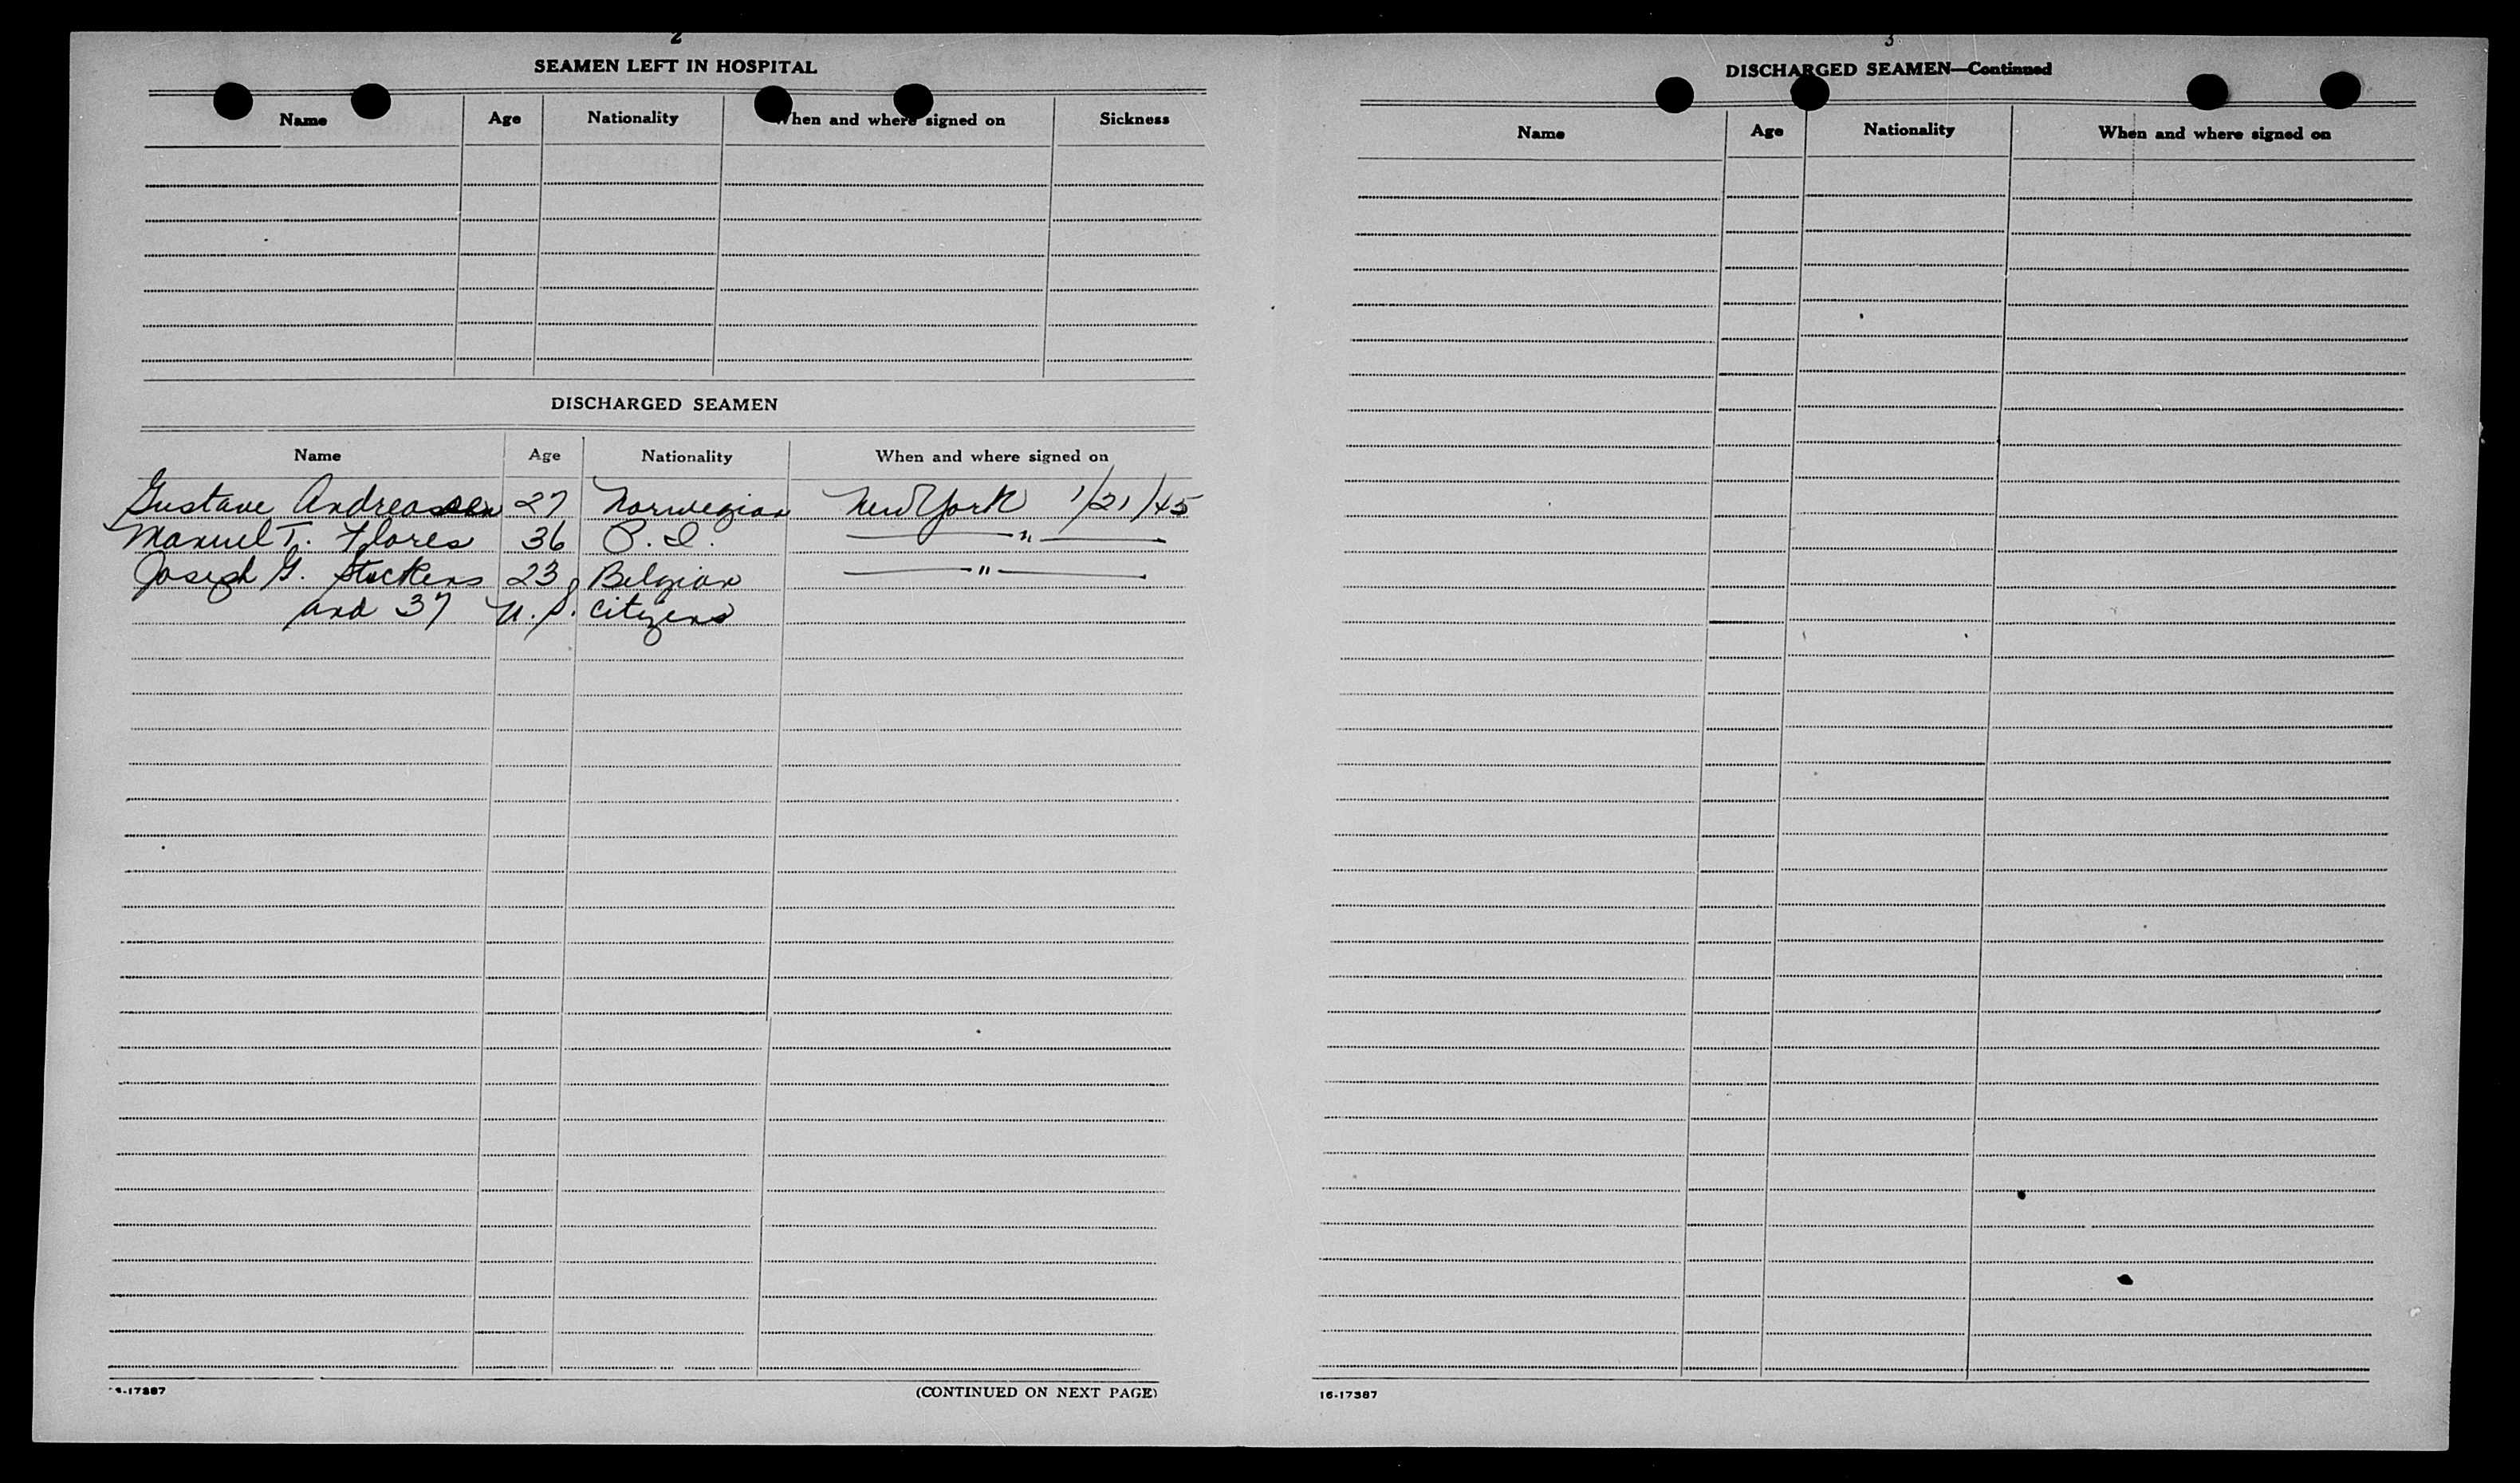 2
SEAMEN LEFT IN HOSPITAL
Name Age Nationality When and where signed on Sickness
DISCHARGED SEAMEN
Name Age Nationality When and where signed on
Gustave Andreasen 27 Norwegian New York 1/21/45
Manuel T. Flores 36 P. I. "
Joseph G. Stockens 23 Belgian "
and 37 U. S. citizens
16-17387
(CONTINUED ON NEXT PAGE)
3
DISCHARGED SEAMEN—Continued
Name Age Nationality When and where signed on
16-17387